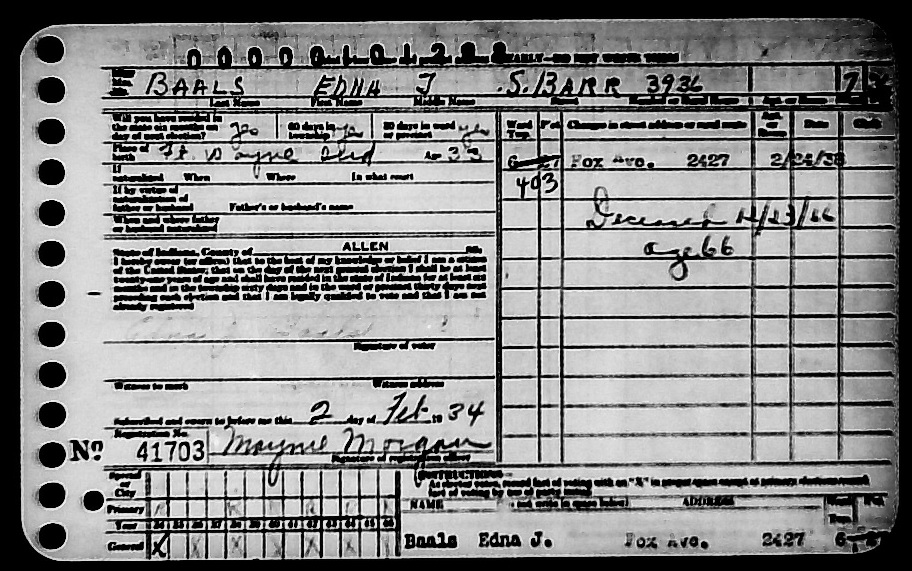 BAALS EDNA J S. BARR 3936
Last Name First Name Middle Name Street Number or Rural Route Apt. or Room
Will you have resided in the state six months on day of next election? yes 60 days in township yes 30 days in ward or precinct yes
Ward Twp. Pct. Changes in street address or rural route Apt. or Room Date Clerk
Place of birth Ft. Wayne Ind Age 33
Fox Ave. 2427 2/24/38
403
If naturalized When Where In what court
If by virtue of naturalization of father or husband Father's or husband's name
Deceased 12/23/66
When and where father or husband naturalized
age 66
State of Indiana, County of ALLEN ss.
I hereby swear (or affirm) that to the best of my knowledge or belief I am a citizen
of the United States; that on the day of the next general election I shall be at least
twenty-one years of age and shall have resided in the state of Indiana for at least six
months and in the township sixty days and in the ward or precinct thirty days next
preceding such election and that I am legally qualified to vote and that I am not
already registered
Edna J. Baals
Signature of voter
Witness to mark Witness address
Subscribed and sworn to before me this 2 day of Feb 19 34
Registration No.
No. 41703 Mayme Morgan
Signature of registration officer
INSTRUCTIONS
Special or City
Primary
NAME ADDRESS Ward Twp. Pct.
Year
General X
Baals Edna J. Fox Ave. 2427